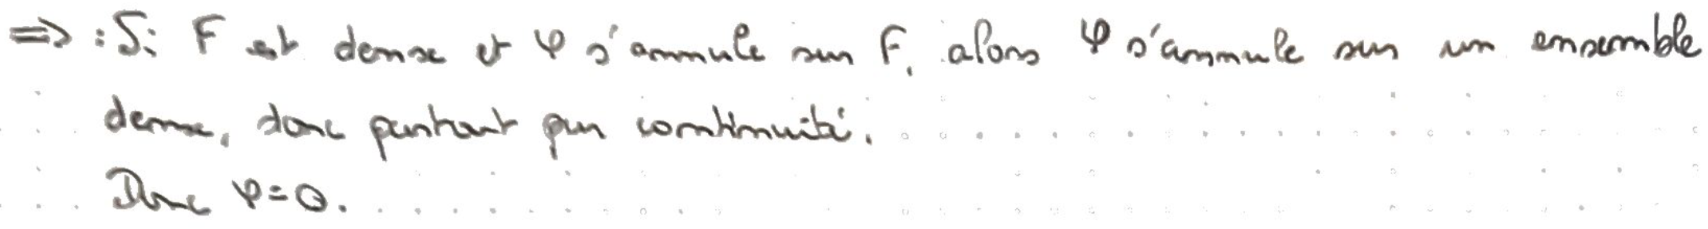 => : Si F est dense et φ s'annule sur F, alors φ s'annule sur un ensemble
dense, donc partout par continuité.
Donc φ=0.